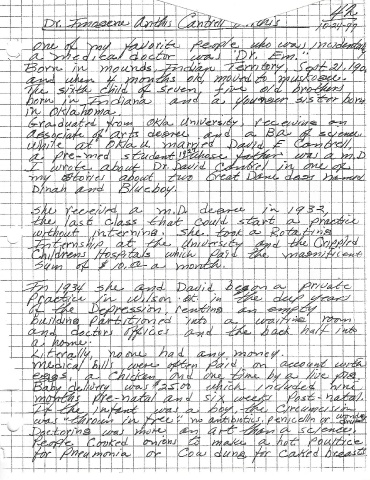 4a
Dr. Anthis Cantrell
10-24-99
one of my favorite people who was incidentally
a medical doctor was "Dr. Em."
Born in mounds, Indian Territory, Sept. 21, 190
and when 4 months old, moved to muskogee.
The sixth child of seven, five old brothers
born in Indiana and a younger sister born
in Oklahoma.
Graduated from Okla University receiving an
associate of arts degree and a BA of science.
While at Okla U married David E Cantrell,
a pre-med student whose father was a M.D.
I wrote about Dr David Cantrell in one of
my stories about two Great Dane dogs named
Dinah and Blueboy.
She received a M.D. degree in 1932
the last class that could start a practice
without interning. She took a Rotating
Internship at the University and the Crippled
Childrens Hospitals which paid the magnificent
sum of $10.00 a month.
In 1934 she and David began a private
Practice in Wilson ok. in the deep years
of the Depression, renting an empty
building Partitioned into a waiting room
and doctors offices and the back half into
a home.
Literally, no one had any money.
medical bills were often paid on account with
eggs, a chicken and one time by a live pig.
Baby delivery was $25.00 which included nine
months pre-natal and six weeks post-natal.
If the infant was a boy, the circumcision
was "thrown in free". no antibiotics, penicillin or wonder drugs
Doctoring was more an art than a science.
People cooked onions to make a hot poultice
for Pneumonia or Cow dung for caked breasts.